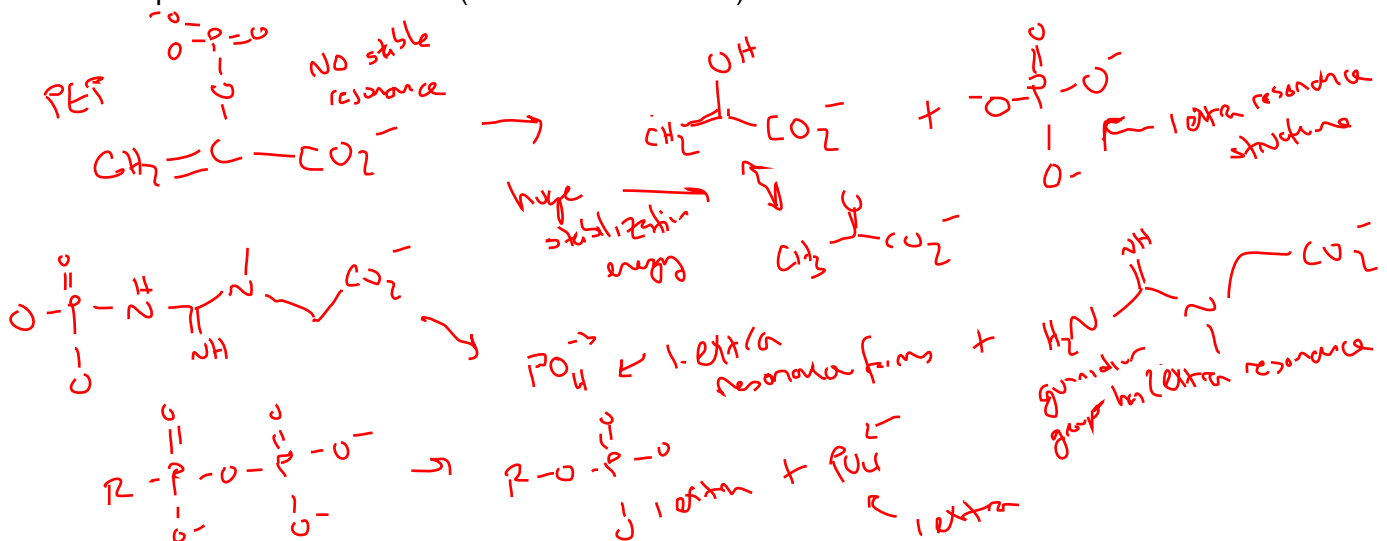 PEP
NO stable
resonance
O⁻
⁻O-P=O
O
CH₂=C-CO₂⁻
→
OH
CH₂=C-CO₂⁻
+
O
⁻O-P-O⁻
O-
← 1 extra resonance
structure
huge
stabilization
energy
O
CH₃ CO₂⁻
O
O-P-NH N CO₂⁻
O NH
PO₄³⁻ ← 1 extra
resonance forms
+
NH
H₂N N CO₂⁻
group has 1 extra resonance
O O
R-P-O-P-O⁻
O⁻ O⁻
→
O
R-O-P-O
O 1 extra
+ PO₄²⁻
1 extra